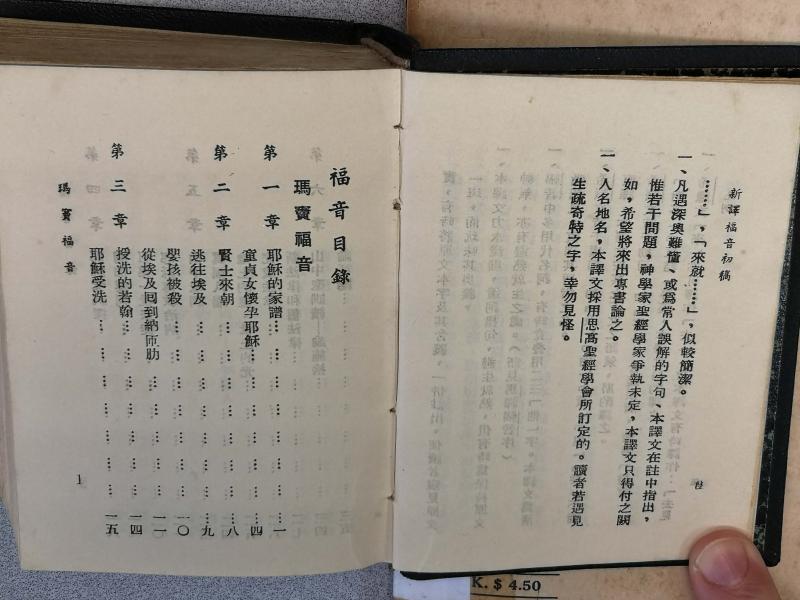 新譯福音初稿
……」,「來就……」,似較簡潔。
一、凡遇深奧難懂、或爲常人誤解的字句、本譯文在註中指出,
惟若干問題,神學家聖經學家爭執未定,本譯文只得付之闕
如,希望將來出專書論之。
一、人名地名,本譯文採用思高聖經學會所訂定的。讀者若遇見
生疏奇特之字,幸勿見怪。
福音目錄
瑪竇福音
第一章 耶穌的家譜 …… 一
童貞女懷孕耶穌 …… 四
第二章 賢士來朝 …… 八
逃往埃及 …… 九
嬰孩被殺 …… 一〇
從埃及囘到納匝肋 …… 一一
第三章 授洗的若翰 …… 一四
耶穌受洗 …… 一五
瑪竇福音
1
K. $ 4.50